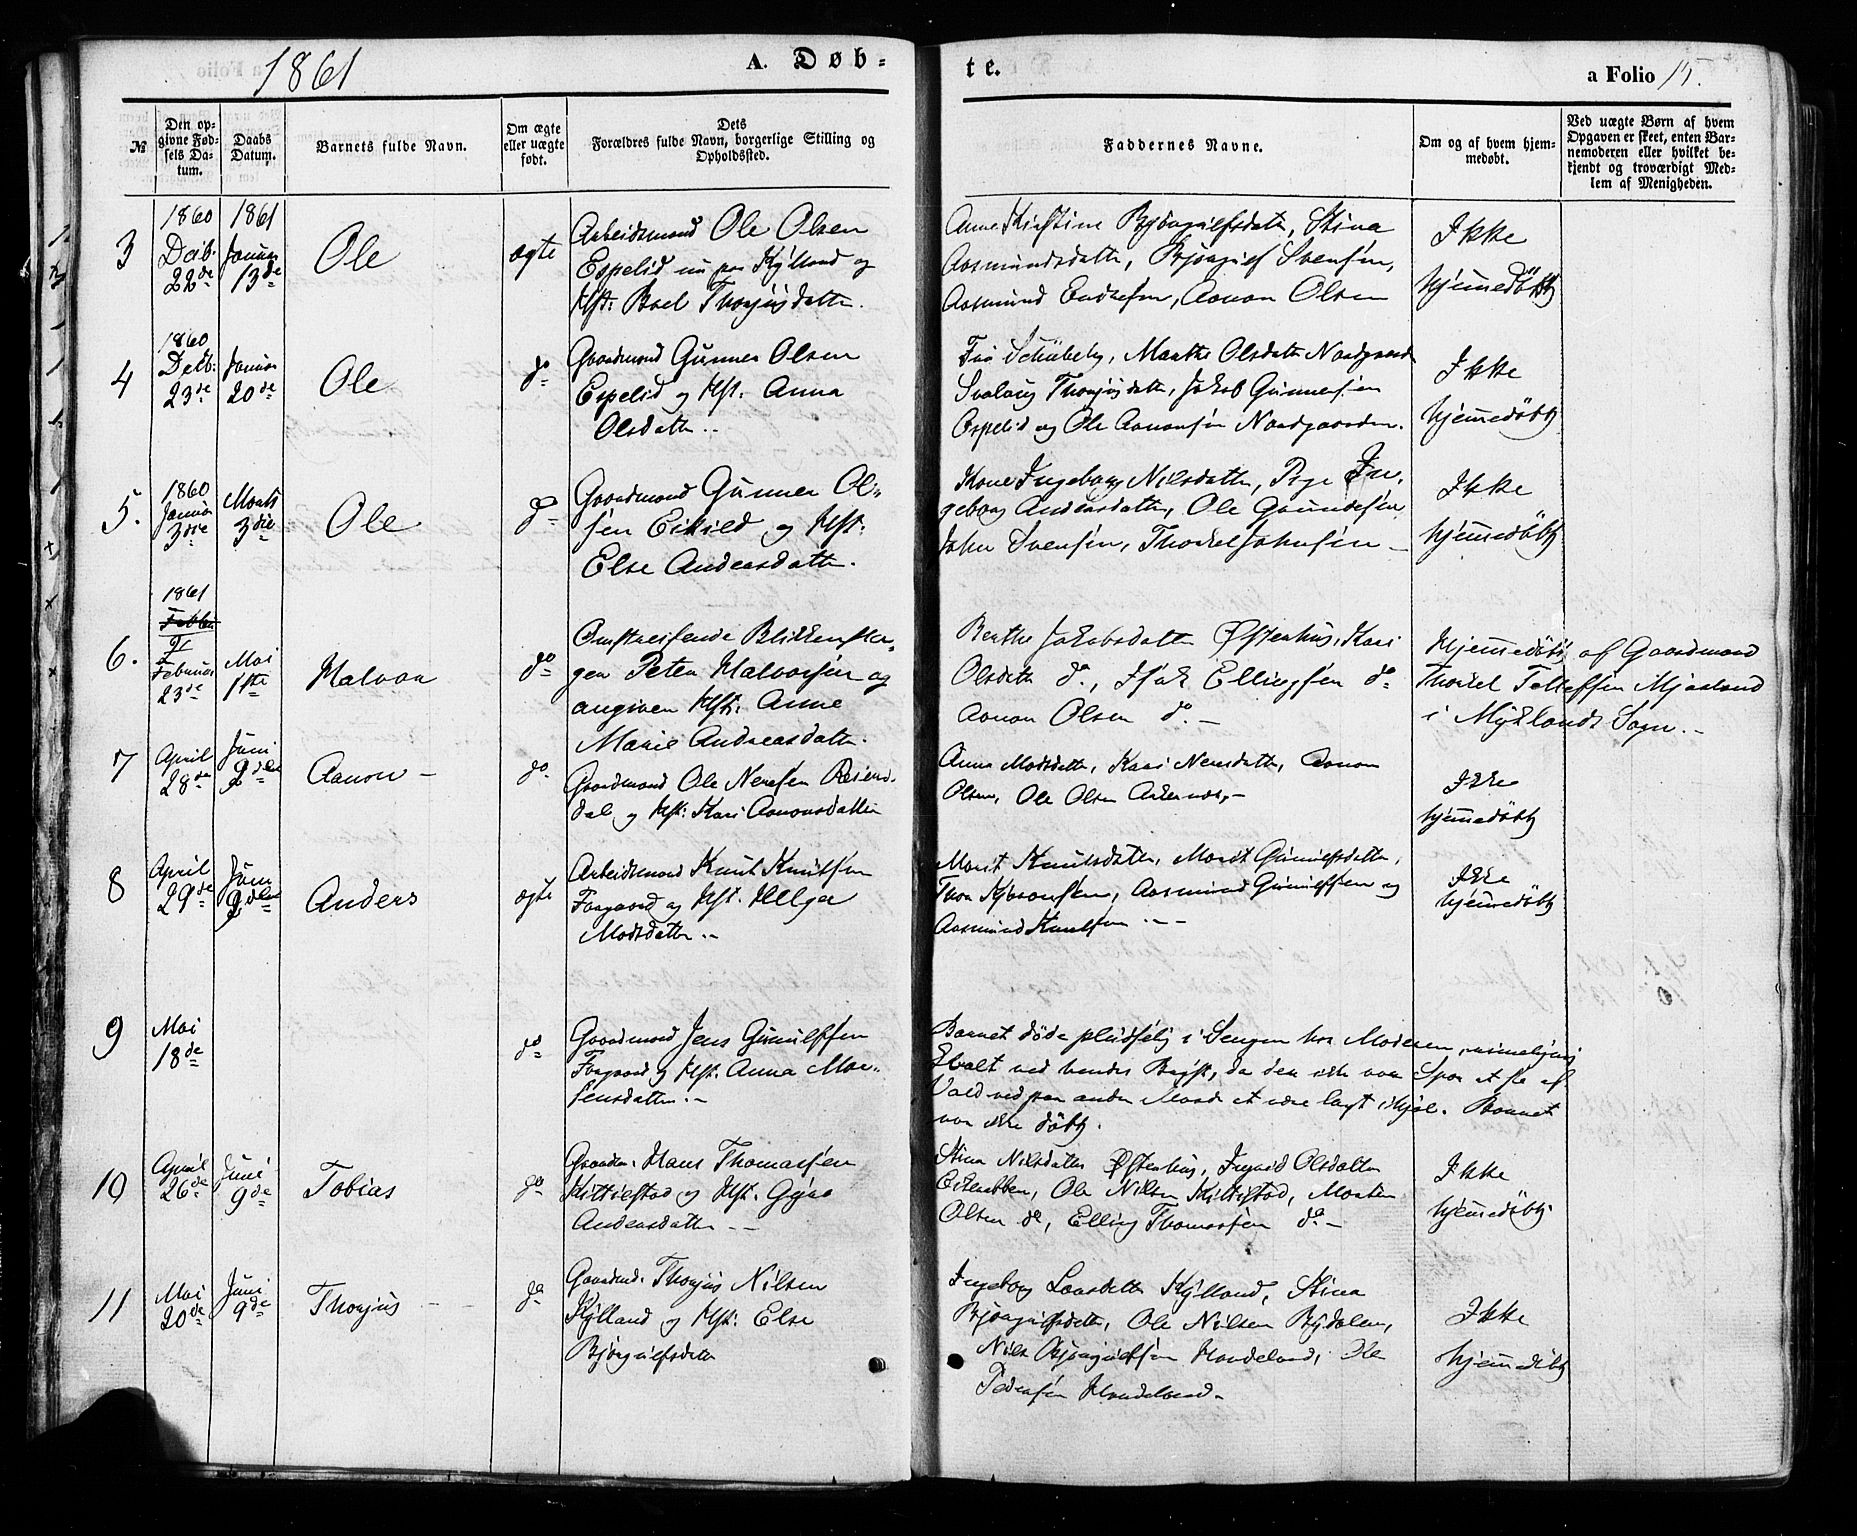 1861
A. Døb-
te.
a Folio 15.
№
Den op-
givne Fød-
sels Da-
tum.
Daabs
Datum.
Barnets fulde Navn.
Om ægte
eller uægte
født.
Dets
Forældres fulde Navn, borgerlige Stilling og
Opholdssted.
Faddernes Navne.
Om og af hvem hjem-
medøbt.
Ved uægte Børn af hvem
Opgaven er skeet, enten Bar-
nemoderen eller hvilket be-
kjendt og troværdigt Med-
lem af Menigheden.
3
1860
22de
1861
Januar
13de
Ole
ægte
Arbeidsmand Ole Olsen
Espelid nu paa Kylland og
Hst: Boel Thorjusdatter.
Anne Kirstine Bjørgulfsdatter, Stina
Aasmundsdatter, Bjørgulf Svensen,
Aasmund Endresen, Aanon Olsen
Ikke
hjemmedøbt
4
1860
Decb:
23de
Januar
20de
Ole
do
Gaardmand Gunner Olsen
Espelid og Hst: Anna
Olsdatter..
Marthe Olsdatter Nordgaard
Thorjusdatter, Jakob Gunnersen
Espelid og Ole Aanonsen Nordgaarden.
Ikke
hjemmedøbt
5.
1860
Januar
3die
Marts
3die
Ole
do
Gaardmand Gunner Ol-
sen Eikild og Hst:
Else Andersdatter.
Kone Ingeborg Nilsdatter, Pige In-
geborg Andersdatter, Ole Gundersen
John Svensen, Thorkel Johnsen -
Ikke
hjemmedøbt
6.
1861
Februar
23de
Mai
1ste
Halvor
do
Omstreifende Blikkensla-
ger Peter Halvorsen og
angiven Hst: Anne
Marie Andreasdatter.
Berthe Jakobsdatter Østerhus, Kari
Olsdatter do, Isak Ellingsen do
Aanon Olsen do. -
Hjemmedøbt af Gaardmand
Thorkel Tellefsen Mjaaland
i Myklands Sogn. -
7
April
28de
Juni
9de
Aanon -
do
Gaardmand Ole Nersen Reiers-
dal og Hst: Kari Aanonsdatter
Anna Madsdatter, Kari Nersdatter, Aanon
Olsen, Ole Olsen Askernes, -
Ikke
hjemmedøbt
8
April
29de
Juni
9de
Anders
ægte
Arbeidsmand Knut Knutsen
og Hst. Helga
Madsdatter. -
Marit Knutsdatter, Marit Gunulfsdatter,
Aasmund Gunulfsen og
Aasmund Knutsen
Ikke
hjemmedøbt
9
Mai
18de
do
Gaardmand Jens Gunulfsen
og Hst. Anna Mor-
tensdatter. -
Barnet døde pludselig i Sengen hos Moderen, rimeligvis
qvalt ved hendes Bryst, da der ikke var Spor at se af
Vold ved paa anden Maade at være lagt ihjel. Barnet
var ikke døbt.
10
April
26de
Juni
9de
Tobias
do
Gaardm. Hans Thomassen
Kittilstad og Hst.
Andersdatter - -
Stina Nilsdatter Østerhus, Ingrid Olsdatter
Ole Nilsen Kittilstad, Morten
Olsen do, Elling Thomassen do -
Ikke
hjemmedøbt.
11
Mai
20de
Juni
9de
Thorjus
do
Gaardmd. Thorjus Nilsen
Kylland og Hst: Else
Bjørgulfsdatter
Ingeborg Larsdatter Kylland, Stina
Bjørgulfsdatter, Ole Nilsen
Nils Bjørgulfsen Hovdeland, Ole
Pedersen Hovdeland. -
Ikke
hjemmedøbt